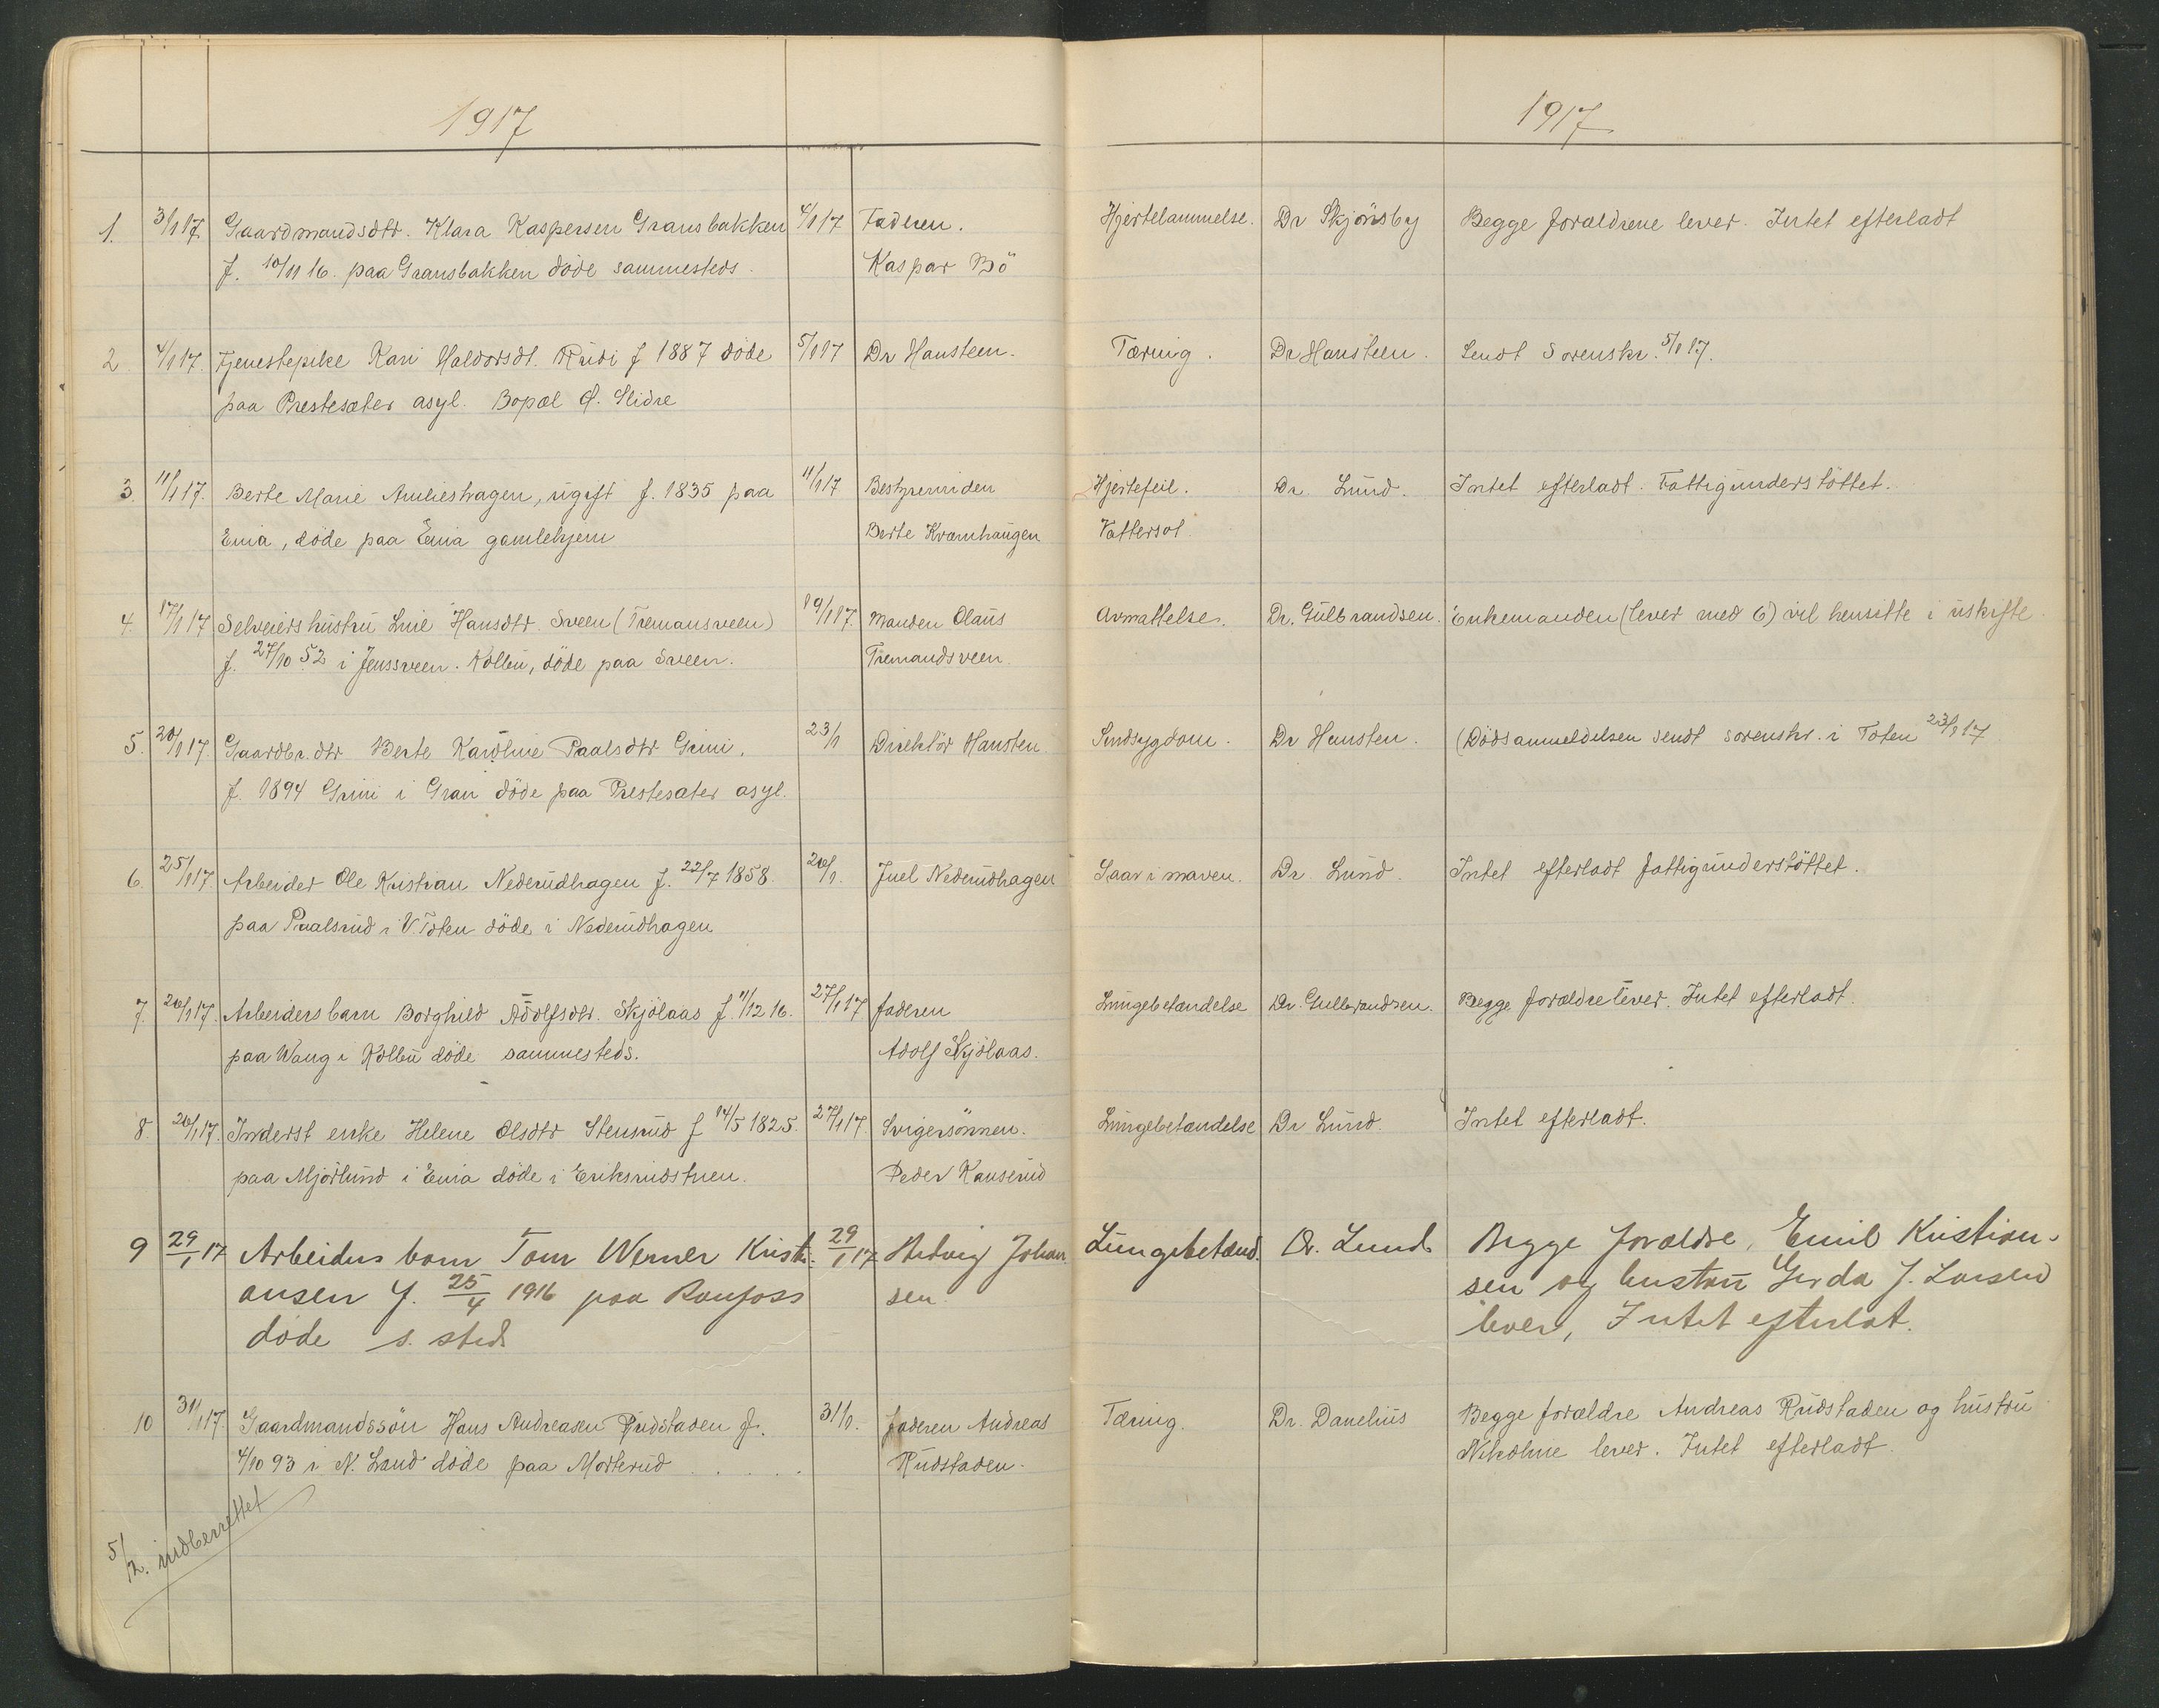 1917
1. 3/1 17. Gaardmandsdtr. Klara Kaspersen Gransbakken 4/1 17 Faderen.
f. 10/11 16. paa Gransbakken döde sammesteds. Kaspar Bö
2. 4/1 17. Tjenestepike Kari Haldorsdt. Rudi f 1887 döde 5/1 17 Dr Hansteen.
paa Prestesæter asyl. Bopæl Ø. Slidre
3. 11/1 17. Berte Marie Amlieshagen, ugift f. 1835 paa 11/1 17 Bestyrerinden
Eina, döde paa Eina gamlehjem Berte Kvamhaugen
4. 17/1 17 Selveiers hustru Line Hansdtr. Sveen (Tremansveen) 19/1 17. Manden Olaus
f. 27/10 52 i Jensveen. Kolbu, döde paa Sveen. Tremandsveen.
5. 20/1 17. Gaardbr.dtr Berte Karoline Paalsdtr Grini. 23/1 Direktör Hansten
f. 1894 Grini i Gran döde paa Prestesæter asyl.
6. 25/1 17 Arbeider Ole Kristian Nederudhagen f. 22/7 1858. 26/1. Juel Nederudhagen
paa Paalsrud i V. Toten döde i Nederudhagen
7. 26/1 17. Arbeiders barn Borghild Adolfsdtr. Skjölaas f. 11/12 16. 27/1 17 faderen
paa Wang i Kolbu döde sammesteds. Adolf Skjölaas.
8. 26/1 17. Inderst enke Helene Olsdtr Stensrud f 14/5 1825. 27/1 17. Svigersönnen.
paa Mjörlund i Eina döde i Eriksrudstuen. Peder Kauserud
9 29/1 17 Arbeiders barn Tom Werner Kristi- 29/1 17 Hedvig Johan
ansen f. 25/4 1916 paa Raufoss sen.
döde s. sted
10 31/1 17. Gaardmandssön Hans Andreasen Rudstaden f. 31/1. faderen Andreas
4/10 93 i N. Land döde paa Morterud . . . . . Rudstaden.
5/2. indberettet
1917
Hjertelammelse. Dr Skjönsby Begge forældrene lever. Intet efterladt
Tæring. Dr Hansteen. Sendt Sorenskr. 5/1 17.
Hjertefeil. Dr. Lund. Intet efterladt. Fattigunderstöttet.
Vattersot
Avmattelse. Dr. Gulbrandsen. Enkemanden (lever med 6) vil hensitte i uskifte.
Sindsygdom. Dr Hansten. (Dödsanmeldelsen sendt sorenskr. i Toten 23/1 17
Saar i maven. Dr. Lund. Intet efterladt fattigunderstöttet.
Lungebetændelse Dr. Gulbrandsen. Begge forældre lever. Intet efterladt.
Lungebetændelse Dr Lund. Intet efterladt.
Lungebetænd. Dr. Lund Begge forældre, Emil Kristian-
sen og hustru Gerda J. Larsen
lever, Intet efterlat.
Tæring. Dr. Danelius Begge forældre Andreas Rudstaden og hustru
Nikoline lever. Intet efterladt.